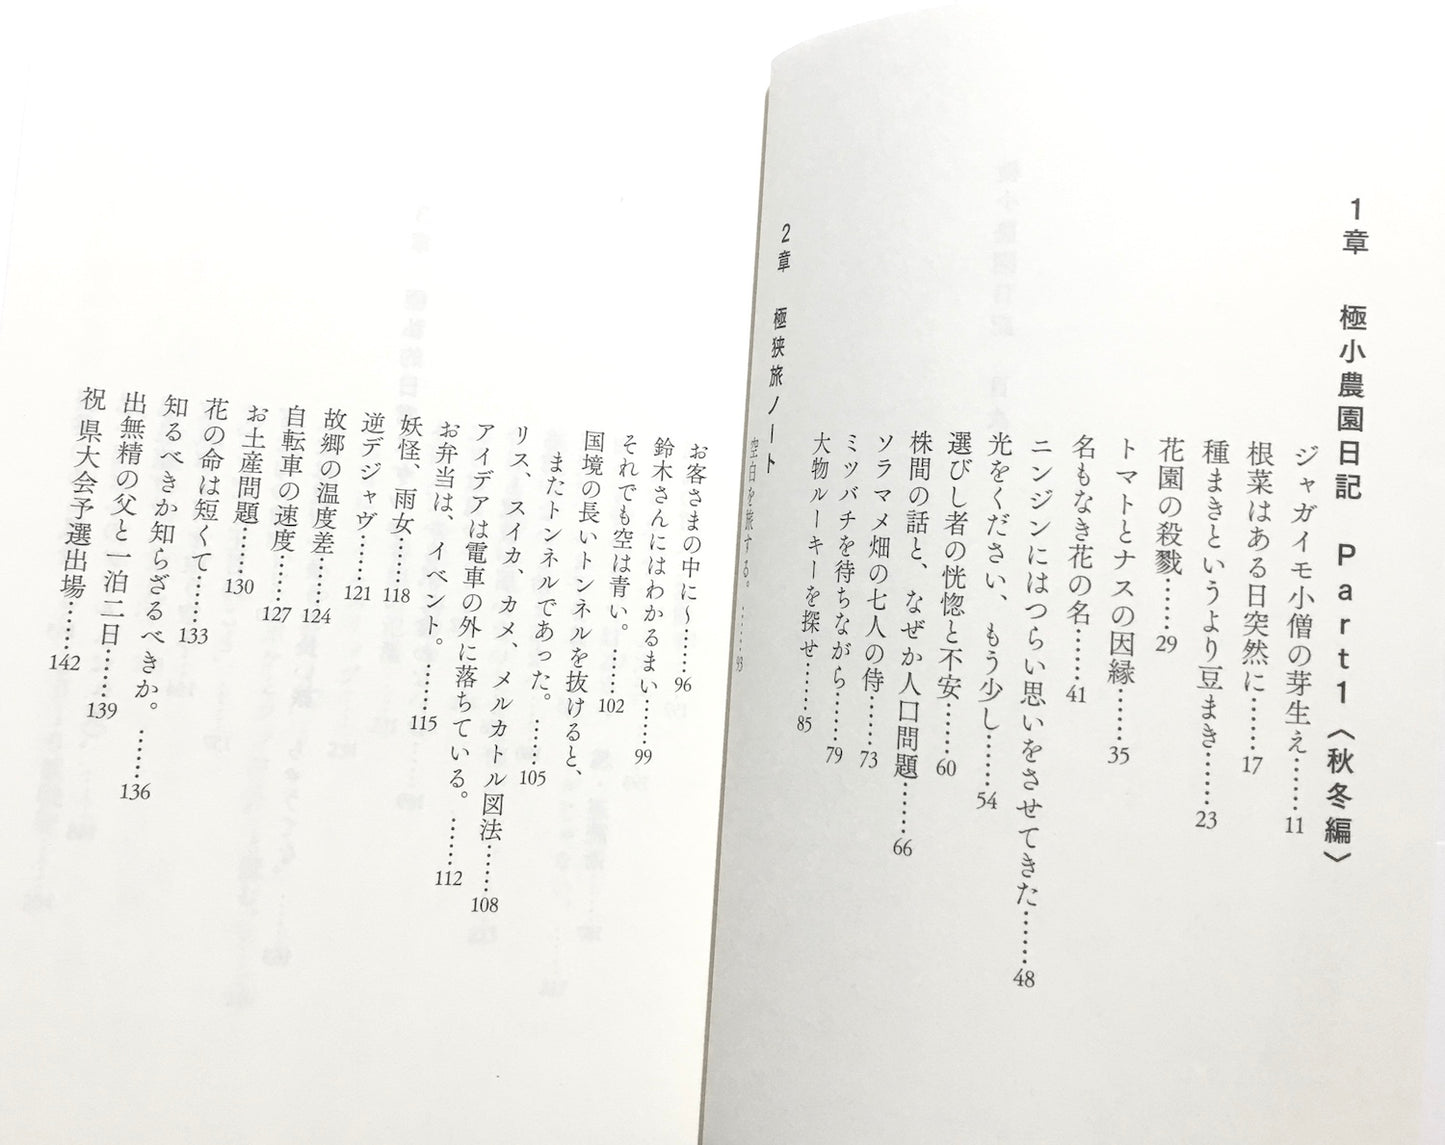 1章 極小農園日記 Part1〈秋冬編〉
ジャガイモ小僧の芽生え……11
根菜はある日突然に……17
種まきというより豆まき……23
花園の殺戮……29
トマトとナスの因縁……35
名もなき花の名……41
ニンジンにはつらい思いをさせてきた……48
光をください、もう少し……54
選びし者の恍惚と不安……60
株間の話と、なぜか人口問題……66
ソラマメ畑の七人の侍……73
ミツバチを待ちながら……79
大物ルーキーを探せ……85
2章 極狭旅ノート
空白を旅する。……93
お客さまの中に～……96
鈴木さんにはわかるまい……99
それでも空は青い。……102
国境の長いトンネルを抜けると、
またトンネルであった。……105
リス、スイカ、カメ、メルカトル図法……108
アイデアは電車の外に落ちている。……112
お弁当は、イベント。……115
妖怪、雨女……118
逆デジャヴ……121
故郷の温度差……124
自転車の速度……127
お土産問題……130
花の命は短くて……133
知るべきか知らざるべきか。……136
出無精の父と一泊二日……139
祝 県大会予選出場……142